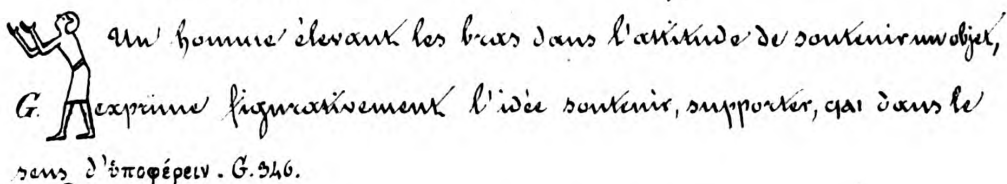 Un homme élevant les bras dans l'attitude de soutenir un objet,
G. exprime figurativement l'idée soutenir, supporter, qai dans le
sens d'ὑποφέρειν. G. 346.